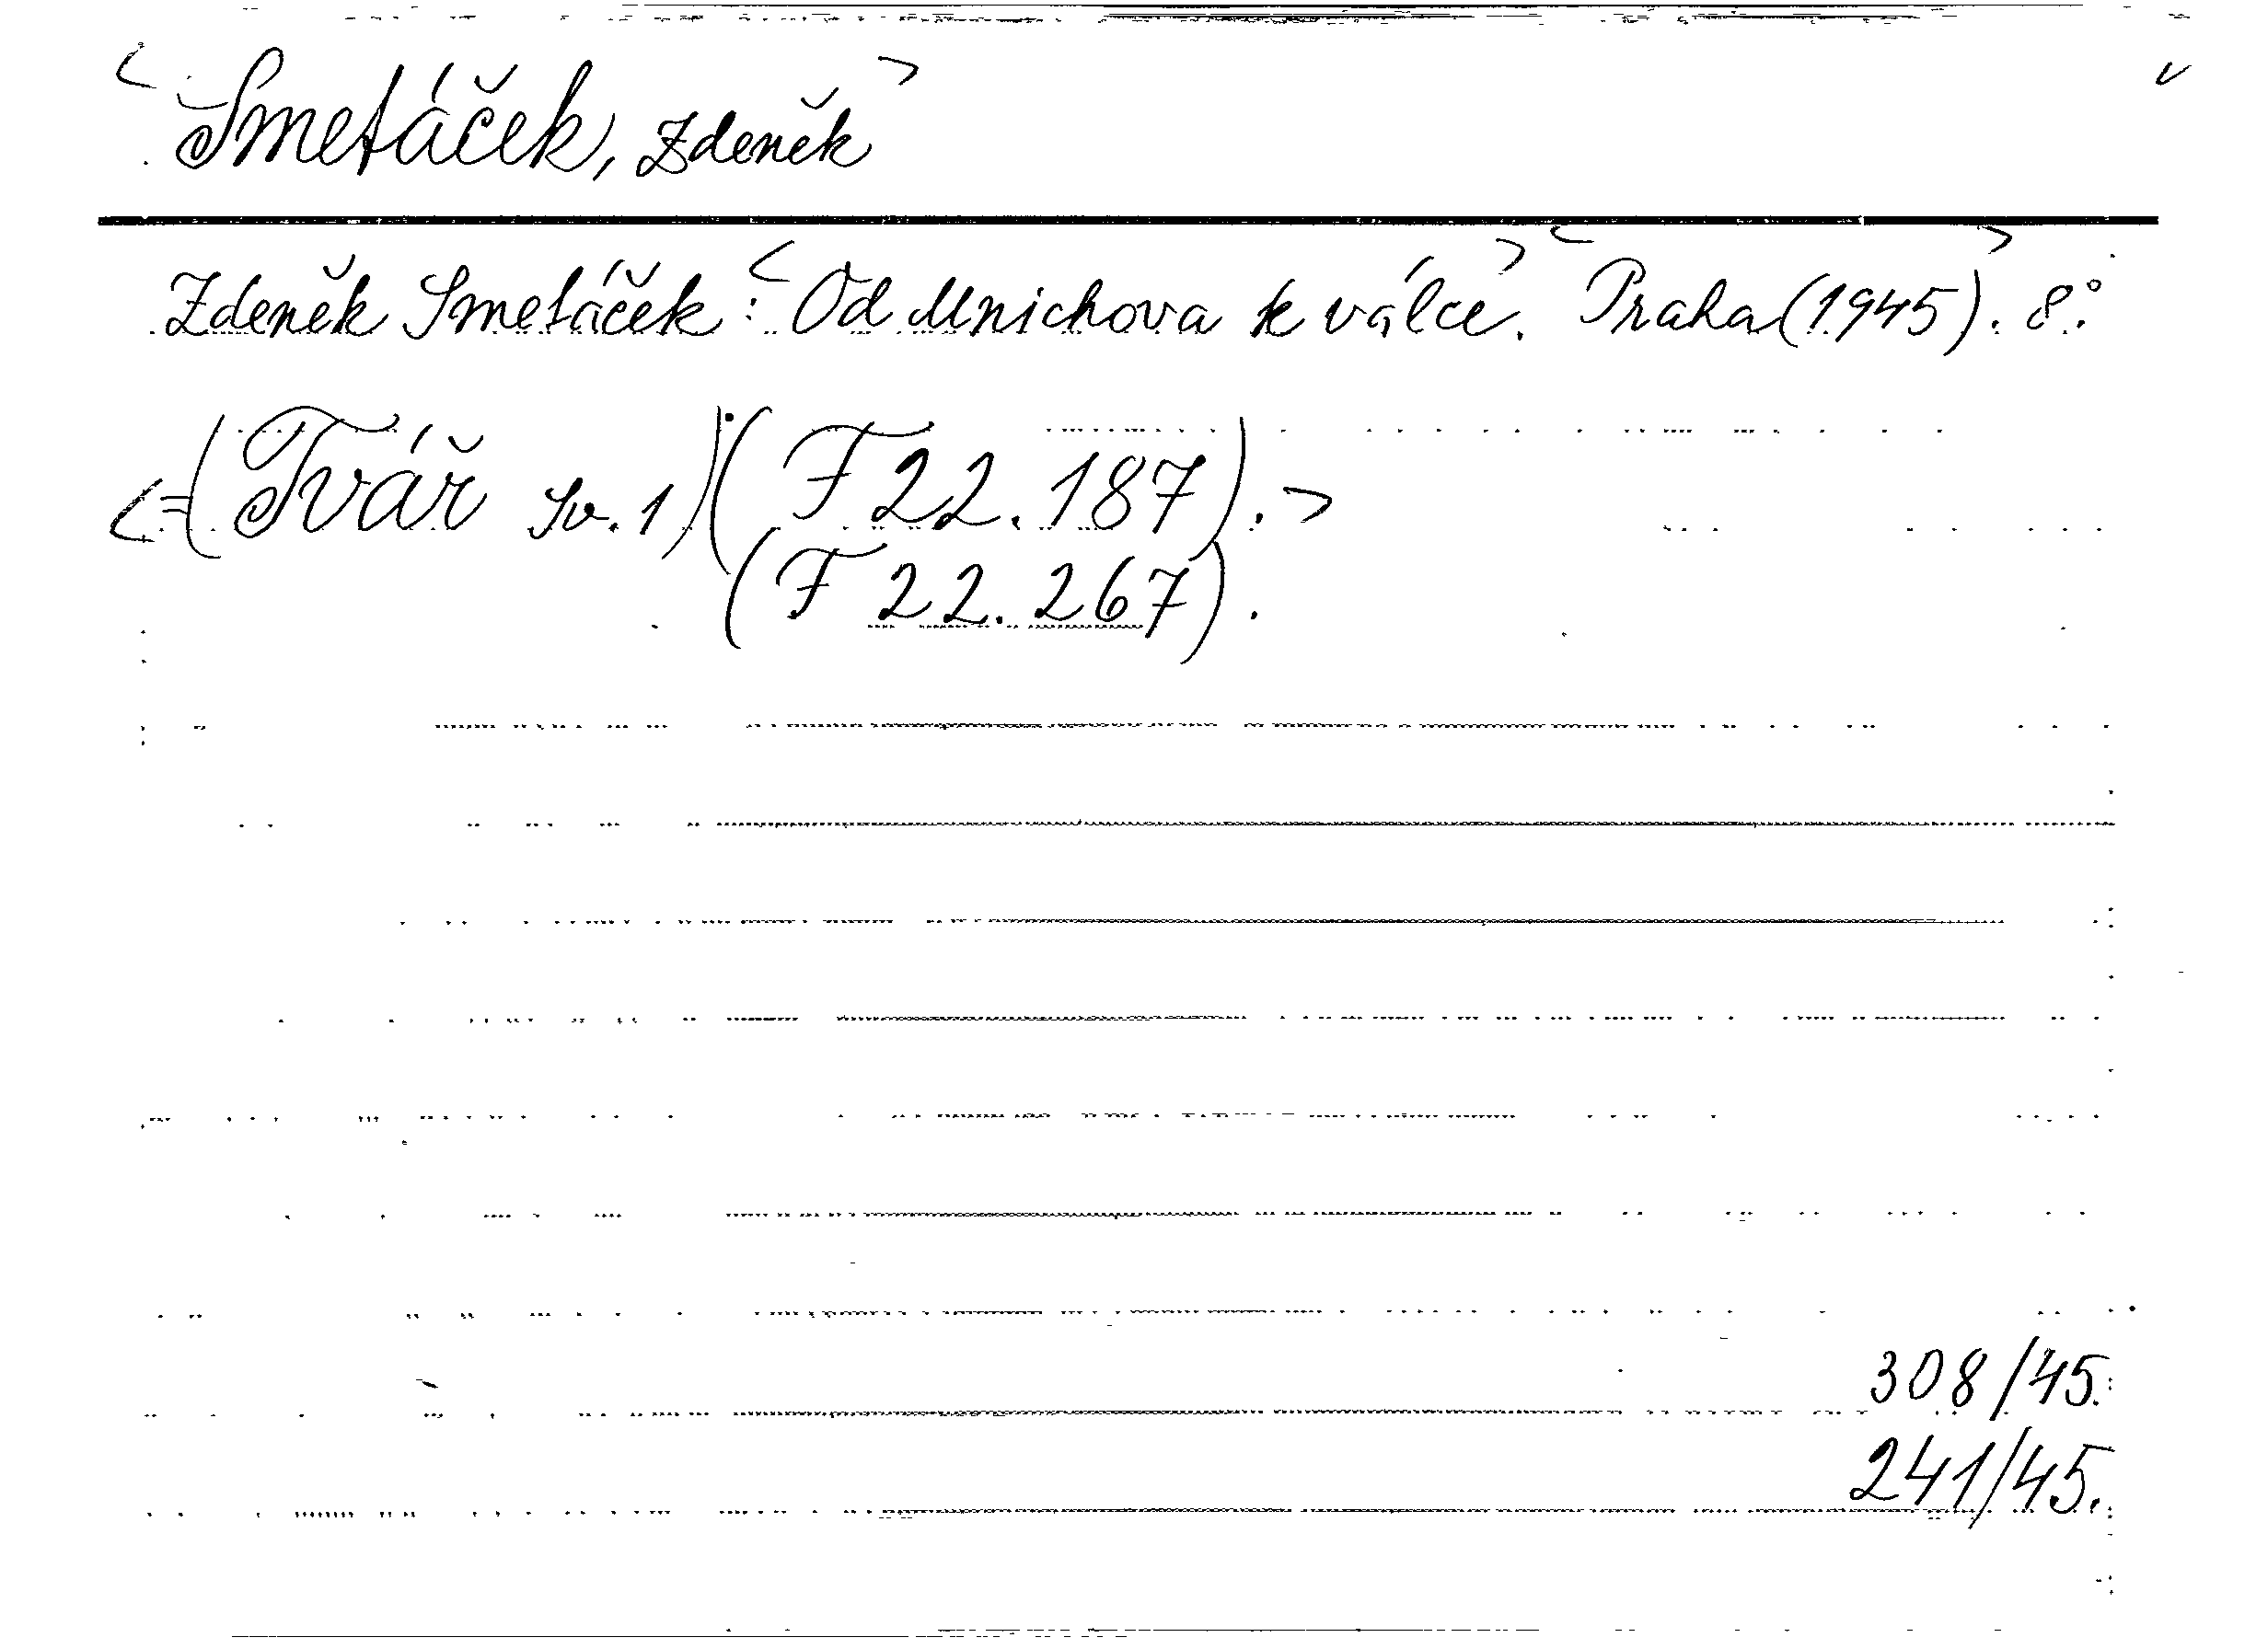 <Smetáček, Zdeněk> v
Zdeněk Smetáček: <Od Mnichova k válce.> <Praha (1945).> 8°.
<=(Tvář sv. 1).(F 22.187).>
(F 22.267).
308/45.
241/45.